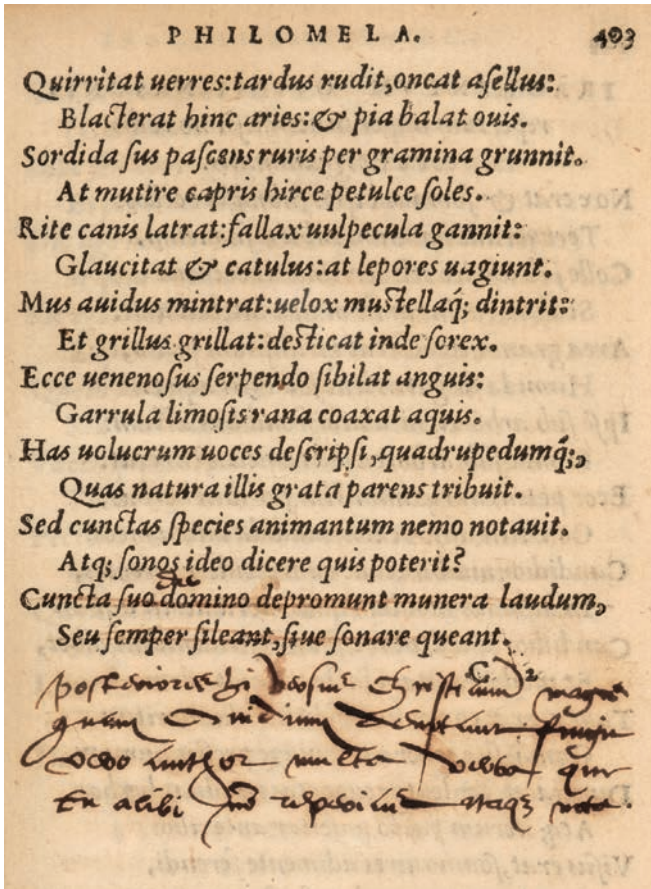 PHILOMELA. 493
Quirritat uerres:tardus rudit,oncat aſellus:
Blacterat hinc aries:& pia balat ouis.
Sordida ſus paſcens ruris per gramina grunnit.
At mutire capris hirce petulce ſoles.
Rite canis latrat:fallax uulpecula gannit:
Glaucitat & catulus:at lepores uagiunt.
Mus auidus mintrat:uelox muſtellaq́; dintrit:
Et grillus grillat:deſticat inde ſorex.
Ecce uenenoſus ſerpendo ſibilat anguis:
Garrula limoſis rana coaxat aquis.
Has uolucrum uoces deſcripſi,quadrupedumq́;,
Quas natura illis grata parens tribuit.
Sed cunctas ſpecies animantum nemo notauit.
Atq; ſonos ideo dicere quis poterit?
Cuncta ſuo domino depromunt munera laudum,
Seu ſemper ſileant,ſiue ſonare queant.
posteriores hi versus Christianum magis
quam Ovidium
vero author multa verba que
et alibi atque nota.